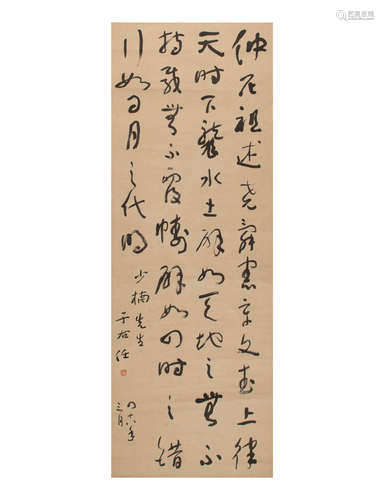 仲尼祖述堯舜憲章文武上律
天時下襲水土辟如天地之無不
持載無不覆幬辟如四時之錯
行如日月之代明
少楠先生
于右任
年
三月